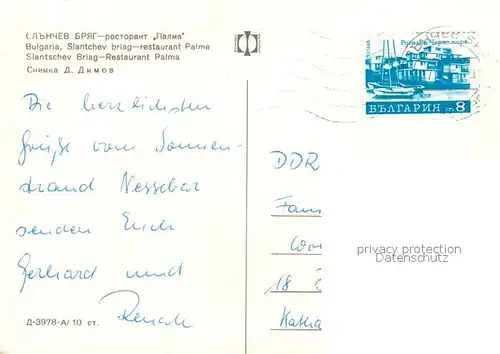 СЛЪНЧЕВ БРЯГ—ресторант „Палма"
Bulgaria, Slantchev briag—restaurant Palma
Slantschev Briag—Restaurant Palma
Снимка Д. Димов
Die herzlichsten
Grüße vom Sonnen-
strand Nessebar
senden Euch
Gerhard und
Д-3978-А/10 ст.
БЪЛГАРИЯ 8
DDR
Fam
18
privacy protection
Datenschutz